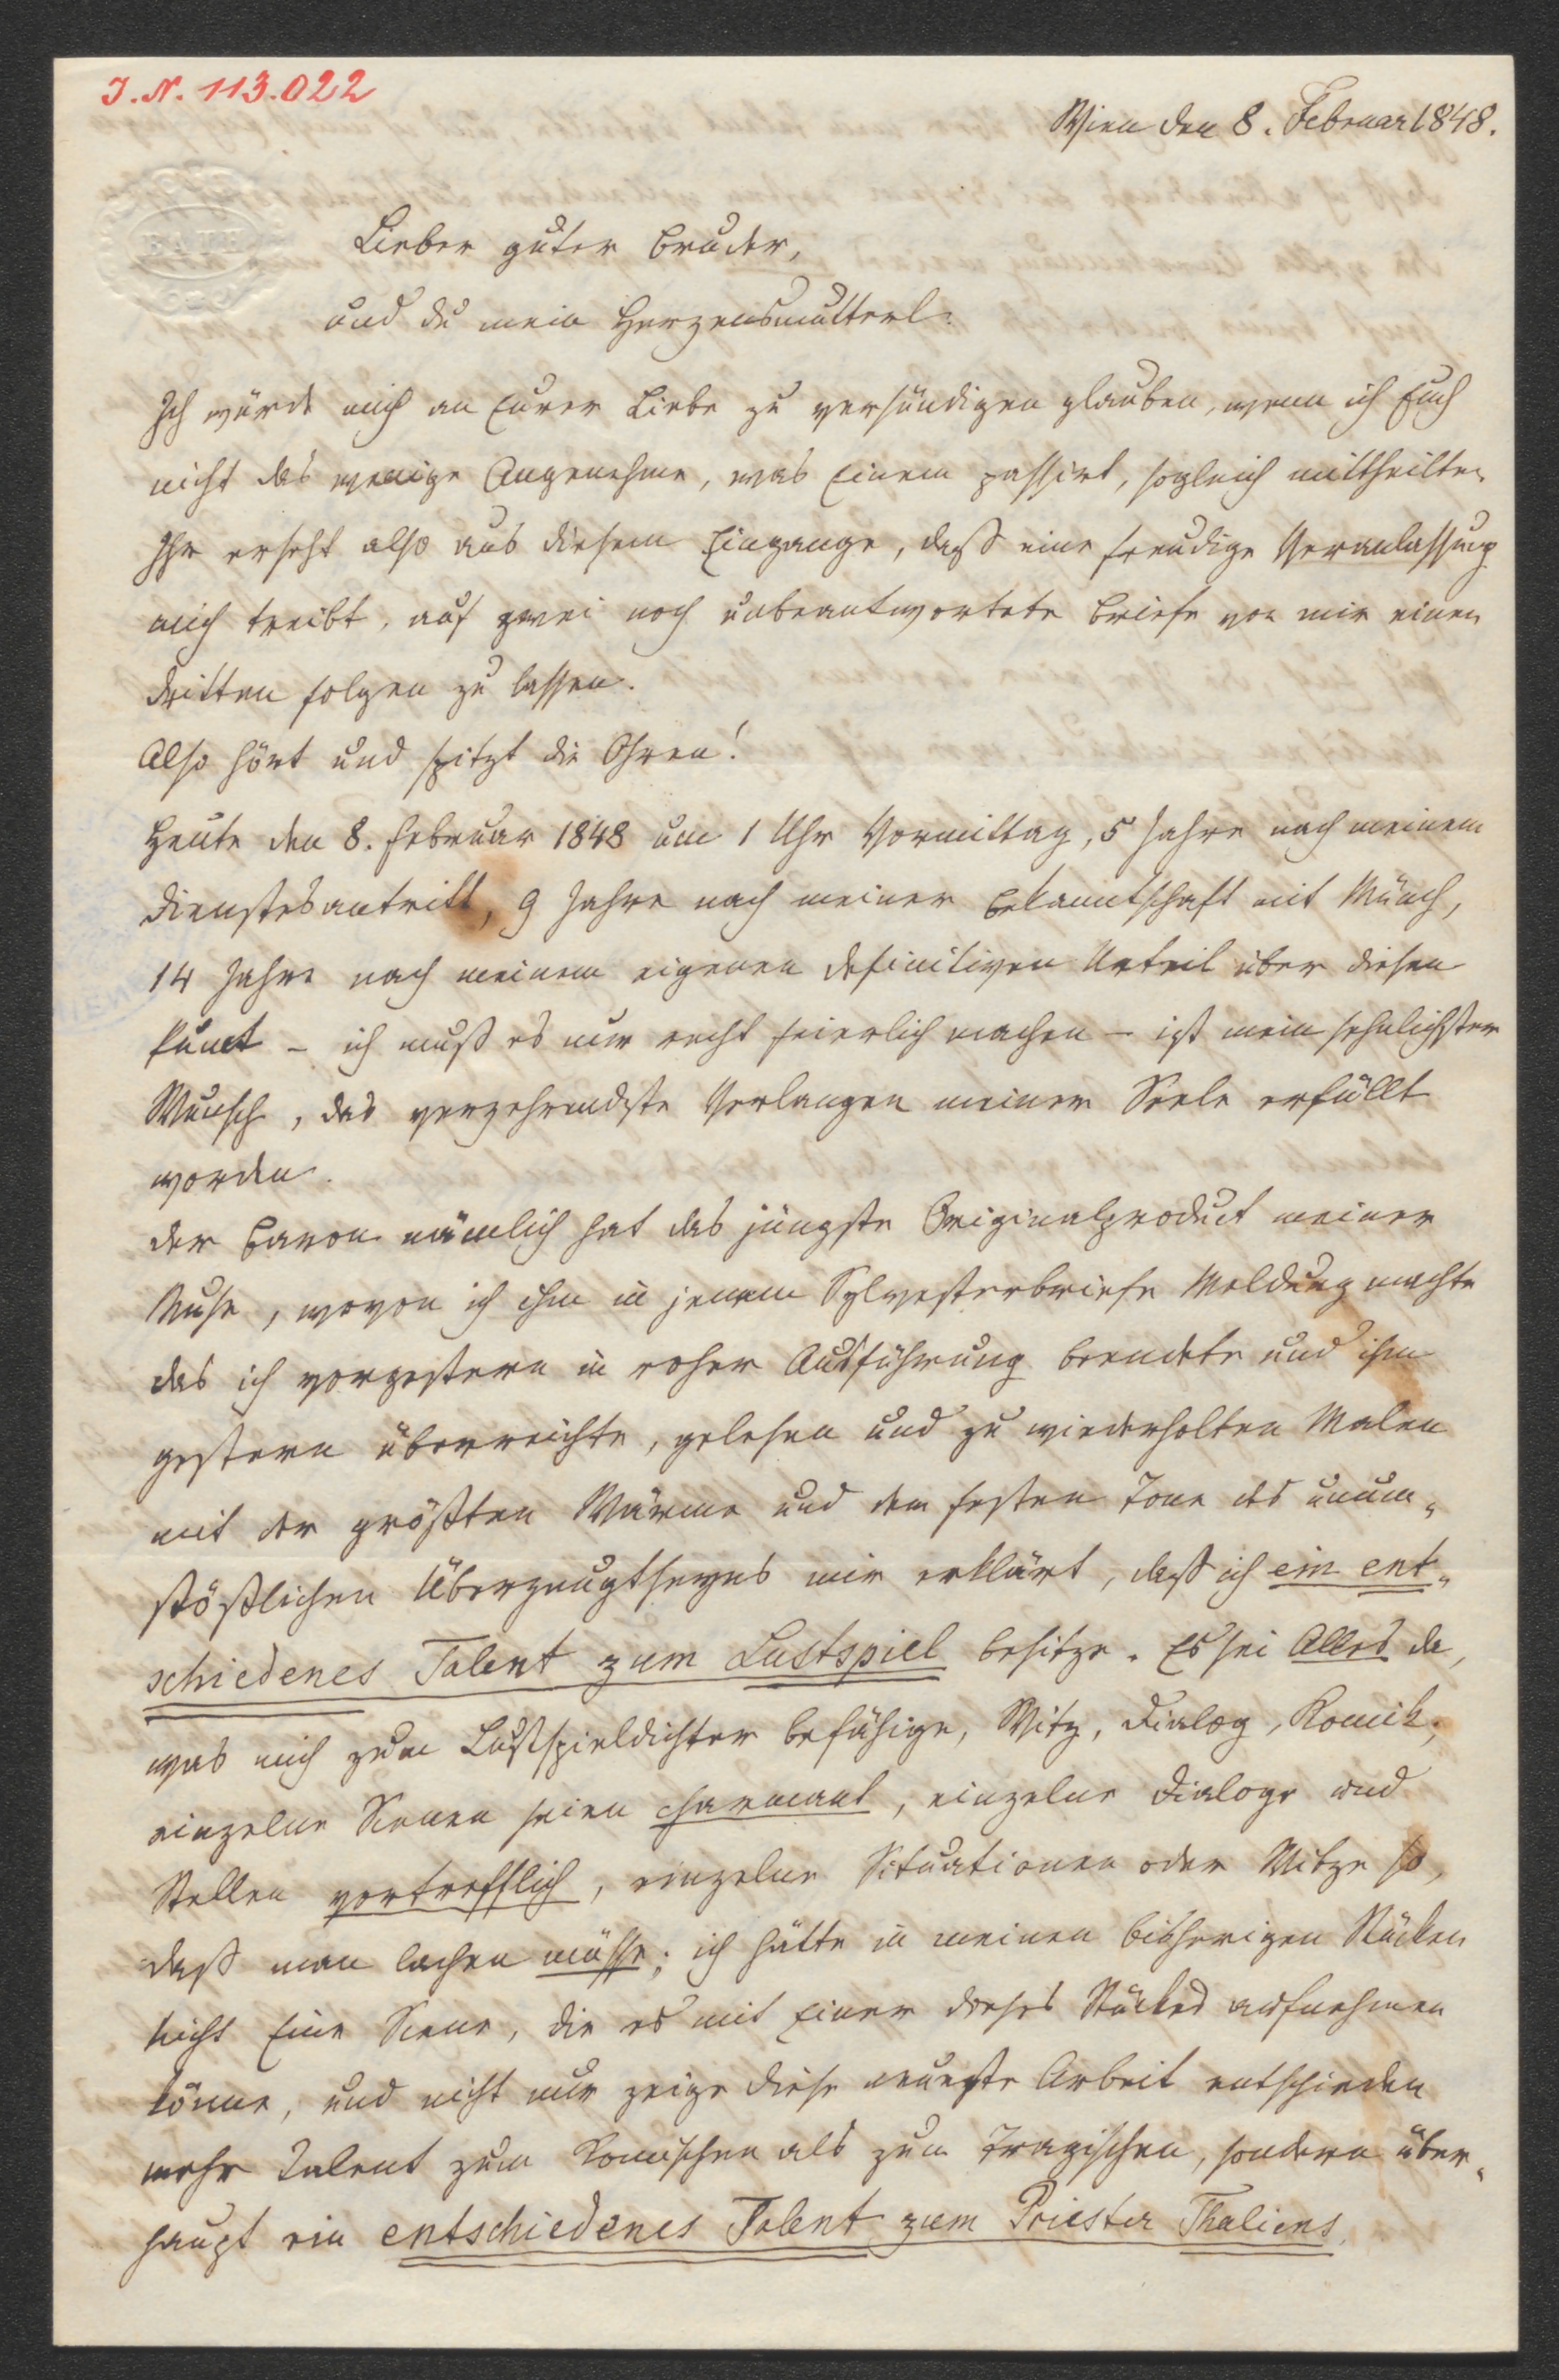 J. N. 113.022
Wien den 8. Februar 1848.
BATH
Lieber guter Bruder,
und du mein Herzensmutterl.
Ich würde mich an Eurer Liebe zu versündigen glauben, wenn ich Euch
nicht das wenige Angenehme, was Einem passirt, sogleich mittheilte.
Ihr erseht also aus diesem Eingange, daß eine freudige Veranlassung
mich treibt, auf zwei noch unbeantwortete Briefe von mir einen
dritten folgen zu lassen.
Also hört und spitzt die Ohren!
Heute den 8. Februar 1848 um 1 Uhr Vormittag, 5 Jahre nach meinem
Dienstesantritt, 9 Jahre nach meiner Bekanntschaft mit Münch,
14 Jahre nach meinem eigenen definitiven Urteil über diesen
Punct – ich muß es nur recht feierlich machen – ist mein sehnlichster
Wunsch, das verzehrendste Verlangen meiner Seele erfüllt
worden.
Der Baron nämlich hat das jüngste Originalproduct meiner
Muse, wovon ich ihm in jenem Sylvesterbriefe Meldung machte
das ich vorgestern in roher Ausführung beendete und ihm
gestern überreichte, gelesen und zu wiederholten Malen
mit der größten Wärme und dem festen Tone des unum-
stößlichen Überzeugtseyns mir erklärt, daß ich ein ent-
schiedenes Talent zum Lustspiel besitze. Es sei Alles da,
was mich zum Lustspieldichter befähige, Witz, Dialog, Komik,
einzelne Scenen seien charmant, einzelne Dialoge und
Stellen vortrefflich, einzelne Situationen oder Witze so,
daß man lachen müsse; ich hätte in meinen bisherigen Stücken
nicht Eine Scene, die es mit Einer dieses Stückes aufnehmen
könne, und nicht nur zeige diese neueste Arbeit entschieden
mehr Talent zum Komischen als zum Tragischen, sondern über-
haupt ein entschiedenes Talent zum Priester Thaliens.